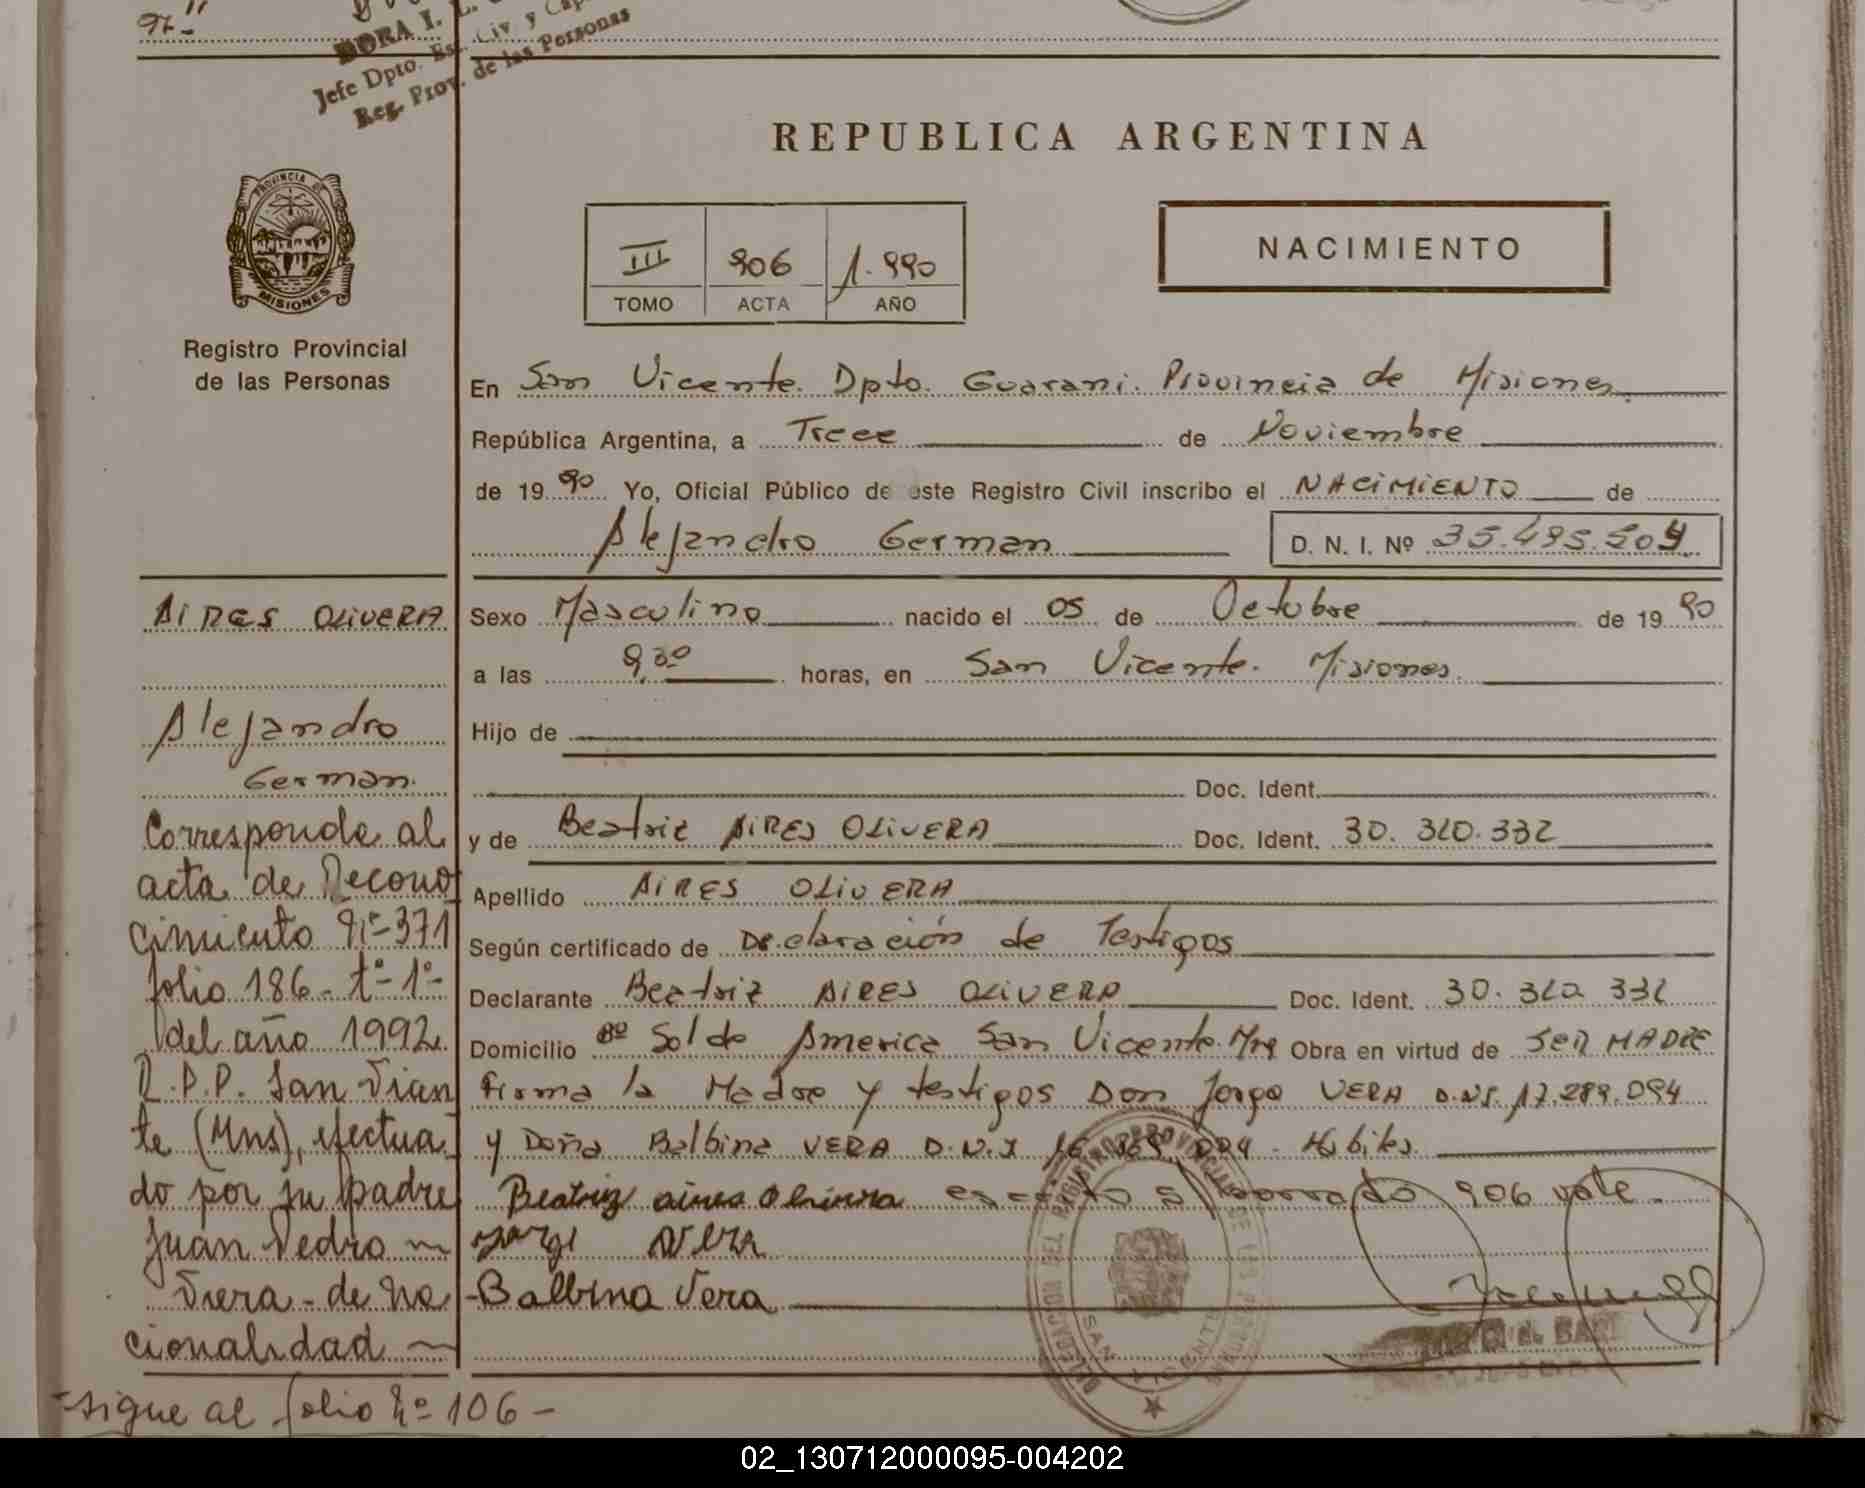 97-"
DORA I. L.
Jefe Dpto. Est. Civ. y Cap.
Reg. Prov. de las Personas
REPUBLICA ARGENTINA
PROVINCIA DE
MISIONES
III 906 1.990
TOMO ACTA AÑO
NACIMIENTO
Registro Provincial
de las Personas
En San Vicente. Dpto. Guarani. Provincia de Misiones
República Argentina, a Trece de Noviembre
de 1990 Yo, Oficial Público de este Registro Civil inscribo el NACIMIENTO de
Alejandro German D. N. I. Nº 35.495.504
Sexo Masculino nacido el 05 de Octubre de 1990
a las 9,30 horas, en San Vicente. Misiones.
Hijo de
Doc. Ident.
y de Beatriz AIRES OLIVERA Doc. Ident. 30.320.332
Apellido AIRES OLIVERA
Según certificado de Declaración de Testigos
Declarante Beatriz AIRES OLIVERA Doc. Ident. 30.320 332
Domicilio Bº Sol de America San Vicente. Mnes Obra en virtud de SER MADRE
Firma la Madre y testigos Don Jorge VERA D.N.I. 17.289.094
y Doña Balbina VERA D.N.I 16.869.004 - Hábiles.
Beatriz aires Olivera escrito s/ borrado 906 vale.
Jorge VERA
Balbina Vera
AIRES OLIVERA
Alejandro
German.
Corresponde al
acta de Recono
cimiento Nº-371
folio 186- tº-1º-
del año 1992
R.P.P. San Vicen
te (Mns), efectua
do por su padre
Juan Pedro
Viera - de Na
cionalidad
-sigue al folio Nº 106-
DELEGACION DEL REGISTRO PROVINCIAL DE LAS PERSONAS
SAN VICENTE
02_130712000095-004202